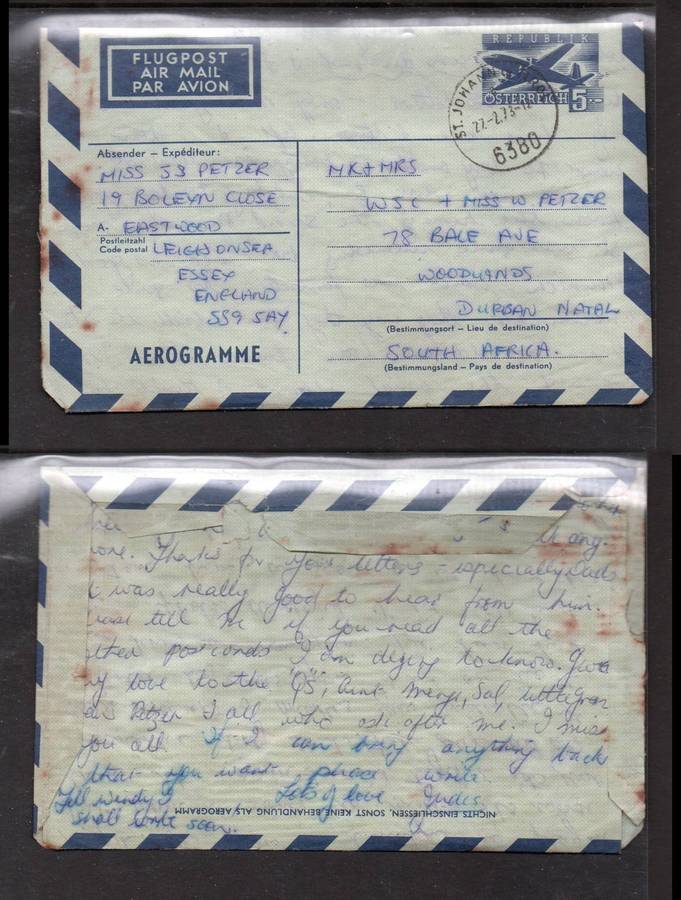 FLUGPOST
AIR MAIL
PAR AVION
REPUBLIK
ÖSTERREICH 5
ST. JOHANN
27-2.73-12
6380
Absender – Expéditeur:
MISS JB PETZER
19 BOLEYN CLOSE
A- EASTWOOD
Postleitzahl
Code postal LEIGH ON SEA
ESSEX
ENGLAND
SS9 5AY
AEROGRAMME
MR + MRS
WJC + MISS W PETZER
78 BALE AVE
WOODLANDS
DURBAN NATAL
(Bestimmungsort – Lieu de destination)
SOUTH AFRICA.
(Bestimmungsland – Pays de destination)
any-
one. Thanks for your letters - especially Dads
it was really good to hear from him.
tell me if you read all the
postcards I am dying to know. Give
my love to the "G's", Aunt Merge, Sal,
Petzer & all who ask after me. I miss
you all. If I can bring anything back
that you want please write.
Lots of love Judes
Tell Wendy I
shall write soon.
NICHTS EINSCHLIESSEN, SONST KEINE BEHANDLUNG ALS AEROGRAMM